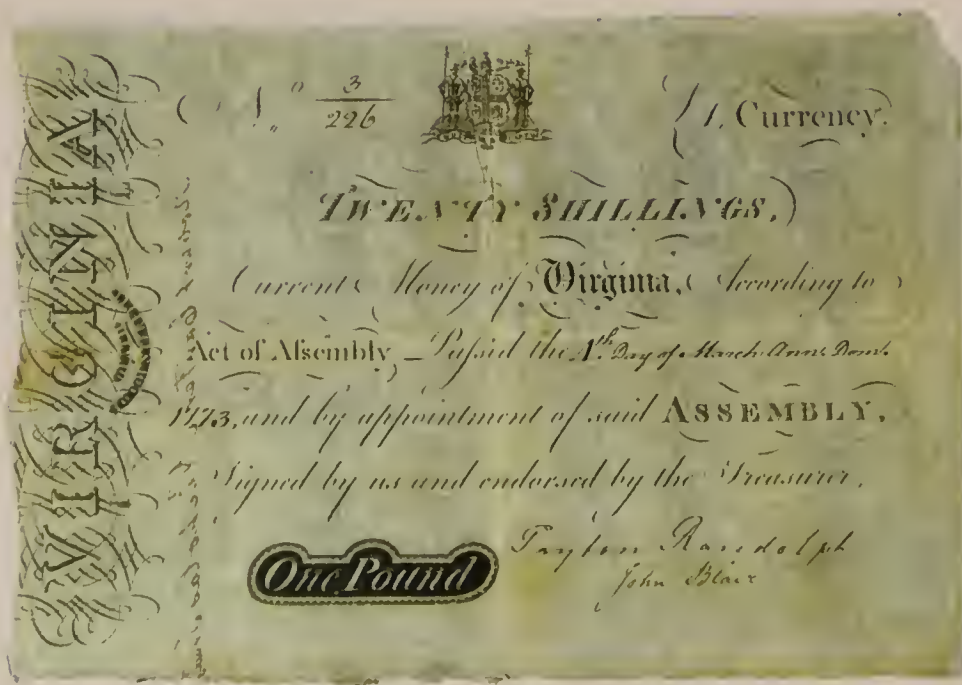 VIRGINIA
3
226
1, Currency.
TWENTY SHILLINGS,
Current Money of Virginia, According to
Act of Aſsembly, Paſsed the 4th Day of March Anno Dom.
1773, and by appointment of said ASSEMBLY.
Signed by us and endorsed by the Treasurer.
One Pound
Peyton Randolph
John Blair